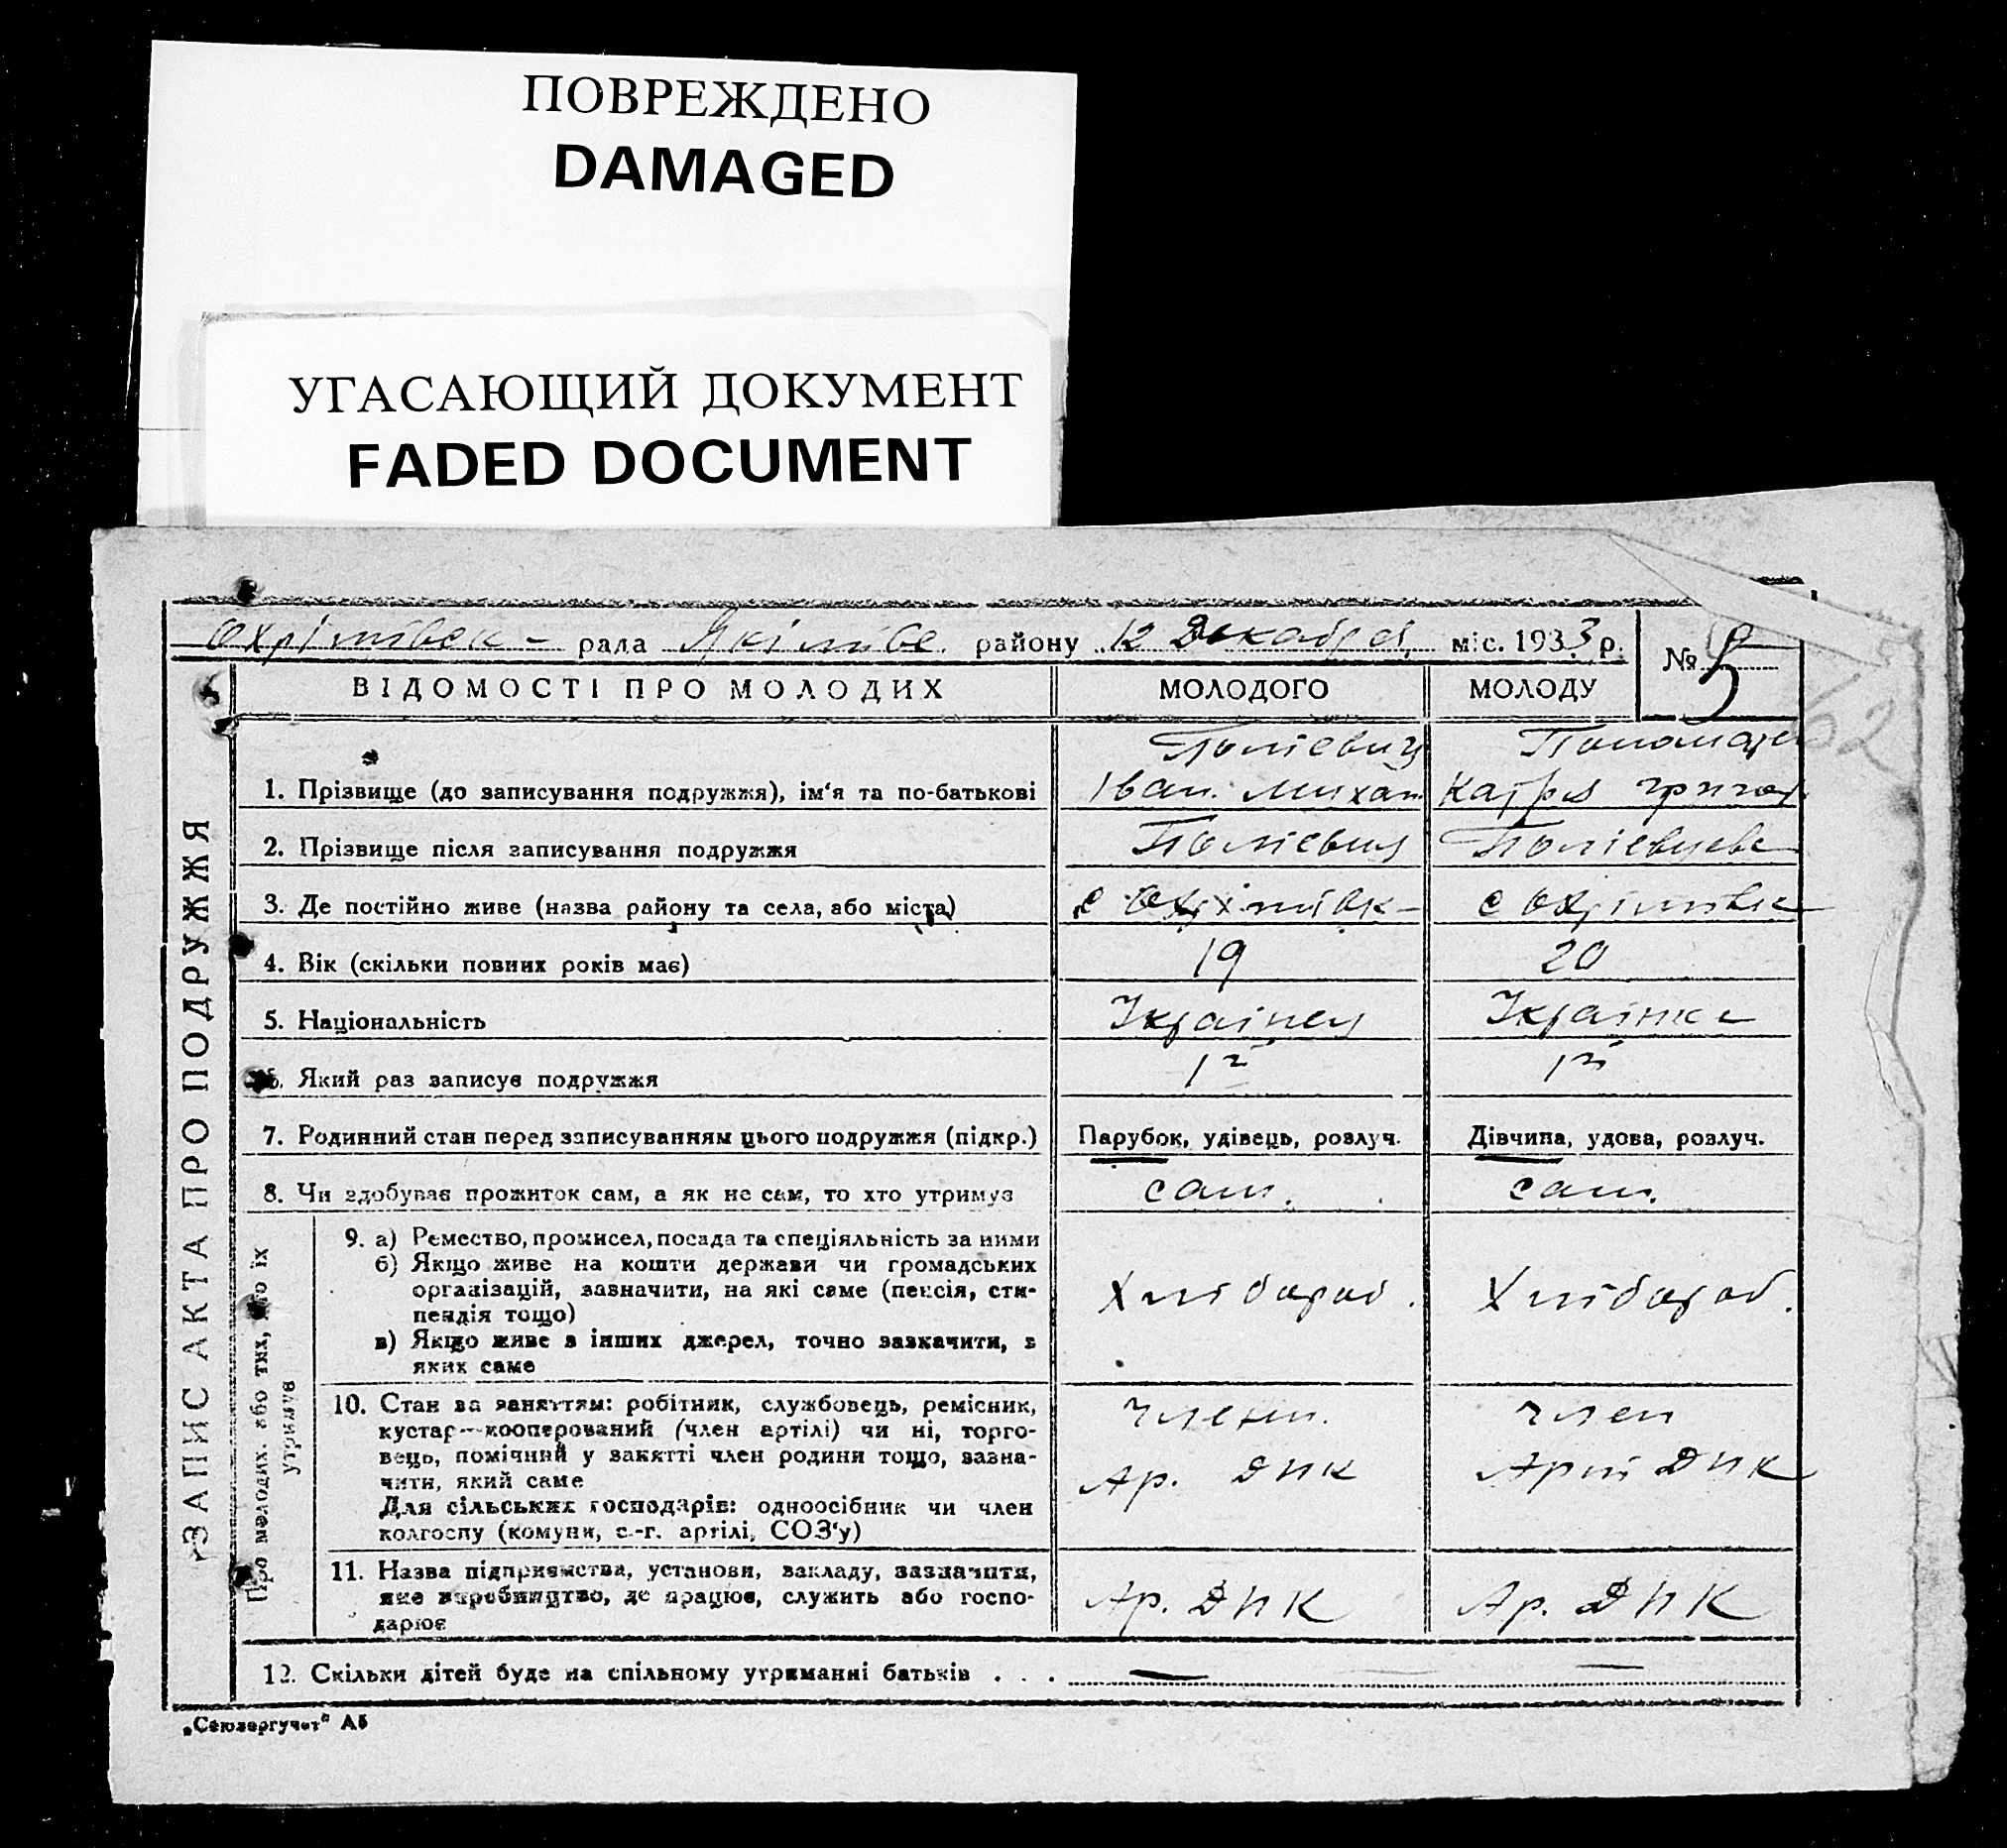 ПОВРЕЖДЕНО
DAMAGED
УГАСАЮЩИЙ ДОКУМЕНТ
FADED DOCUMENT
Охрімівск – рада Якімівс. району 12 Декабря міс. 1933 р.
№ 5
62
ЗАПИС АКТА ПРО ПОДРУЖЖЯ
ВІДОМОСТІ ПРО МОЛОДИХ МОЛОДОГО МОЛОДУ
1. Прізвище (до записування подружжя), ім'я та по-батькові
Іван. Михай
Катря Григор
2. Прізвище після записування подружжя
3. Де постійно живе (назва району та села, або міста)
с Охрімівк-
с Охрімівка
4. Вік (скільки повних років має) 19 20
5. Національність Українец Українка
6. Який раз записує подружжя
7. Родинний стан перед записуванням цього подружжя (підкр.) Парубок, удівець, розлуч. Дівчина, удова, розлуч.
8. Чи здобуває прожиток сам, а як не сам, то хто утримує сам. сам.
Про молодих, або тих, хто їх
утримує
9. а) Ремество, промисел, посада та спеціяльність за ними
б) Якщо живе на кошти держави чи громадських
організацій, зазначити, на які саме (пенсія, сти-
пендія тощо)
в) Якщо живе з інших джерел, точно зазначити, з
яких саме
Хлібороб. Хлібороб.
10. Стан за заняттям: робітник, службовець, ремісник,
кустар—кооперований (член артілі) чи ні, торго-
вець, помічний у занятті член родини тощо, зазна-
чити, який саме
Для сільських господарів: одноосібник чи член
колгоспу (комуни, с.-г. артілі, СОЗ'у)
член
Ар. ДНК
член
Арт ДНК
11. Назва підприємства, установи, закладу, зазначити,
яке виробництво, де працює, служить або госпо-
дарює
Ар. ДНК Ар. ДНК
12. Скільки дітей буде на спільному утриманні батьків . . . — —
„Союзоргучет" А5